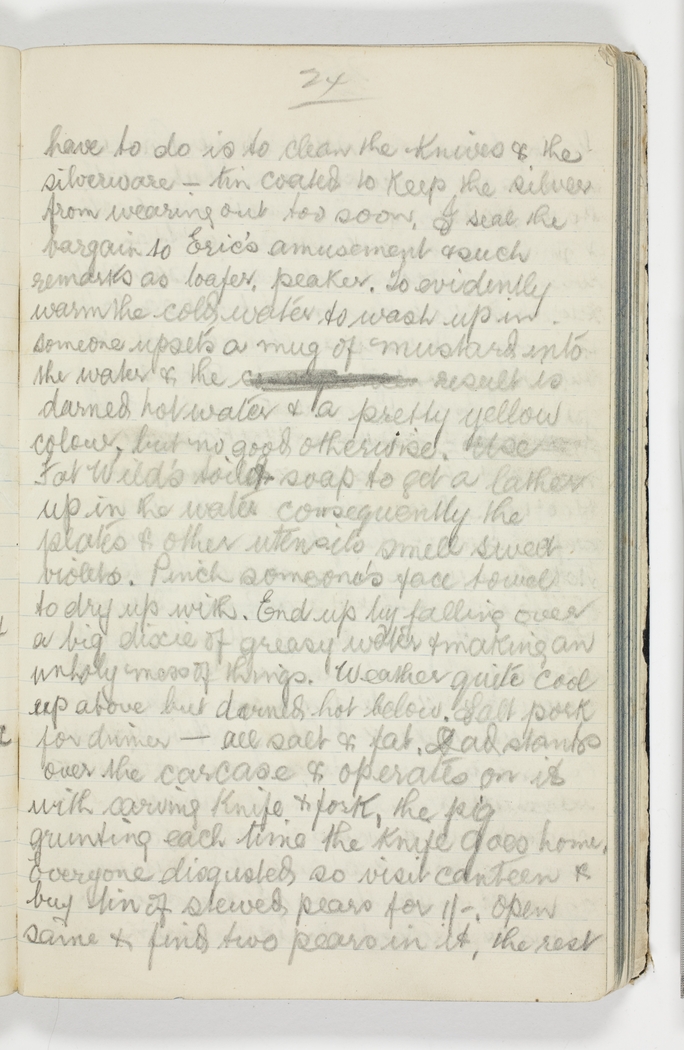 24
have to do is to clean the knives & the
silverware – tin coated to keep the silver
from wearing out too soon. I seal the
bargain to Eric's amusement & such
remarks as loafer, peaker. So evidently
warm the cold water to wash up in.
someone upsets a mug of mustard into
the water & the result is
darned hot water & a pretty yellow
colour, but no good otherwise. Use
Fat Wild's toilet soap to get a lather
up in the water consequently the
plates & other utensils smell sweet
violets. Pinch someone's face towel
to dry up with. End up by falling over
a big dixie of greasy water & making an
unholy mess of things. Weather quite cool
up above but darned hot below. Salt pork
for dinner – all salt & fat. Lad stands
over the carcase & operates on it
with carving knife & fork, the pig
grunting each time the knife goes home.
Everyone disgusted so visit canteen &
buy tin of stewed pears for 1/-. Open
same & find two pears in it, the rest